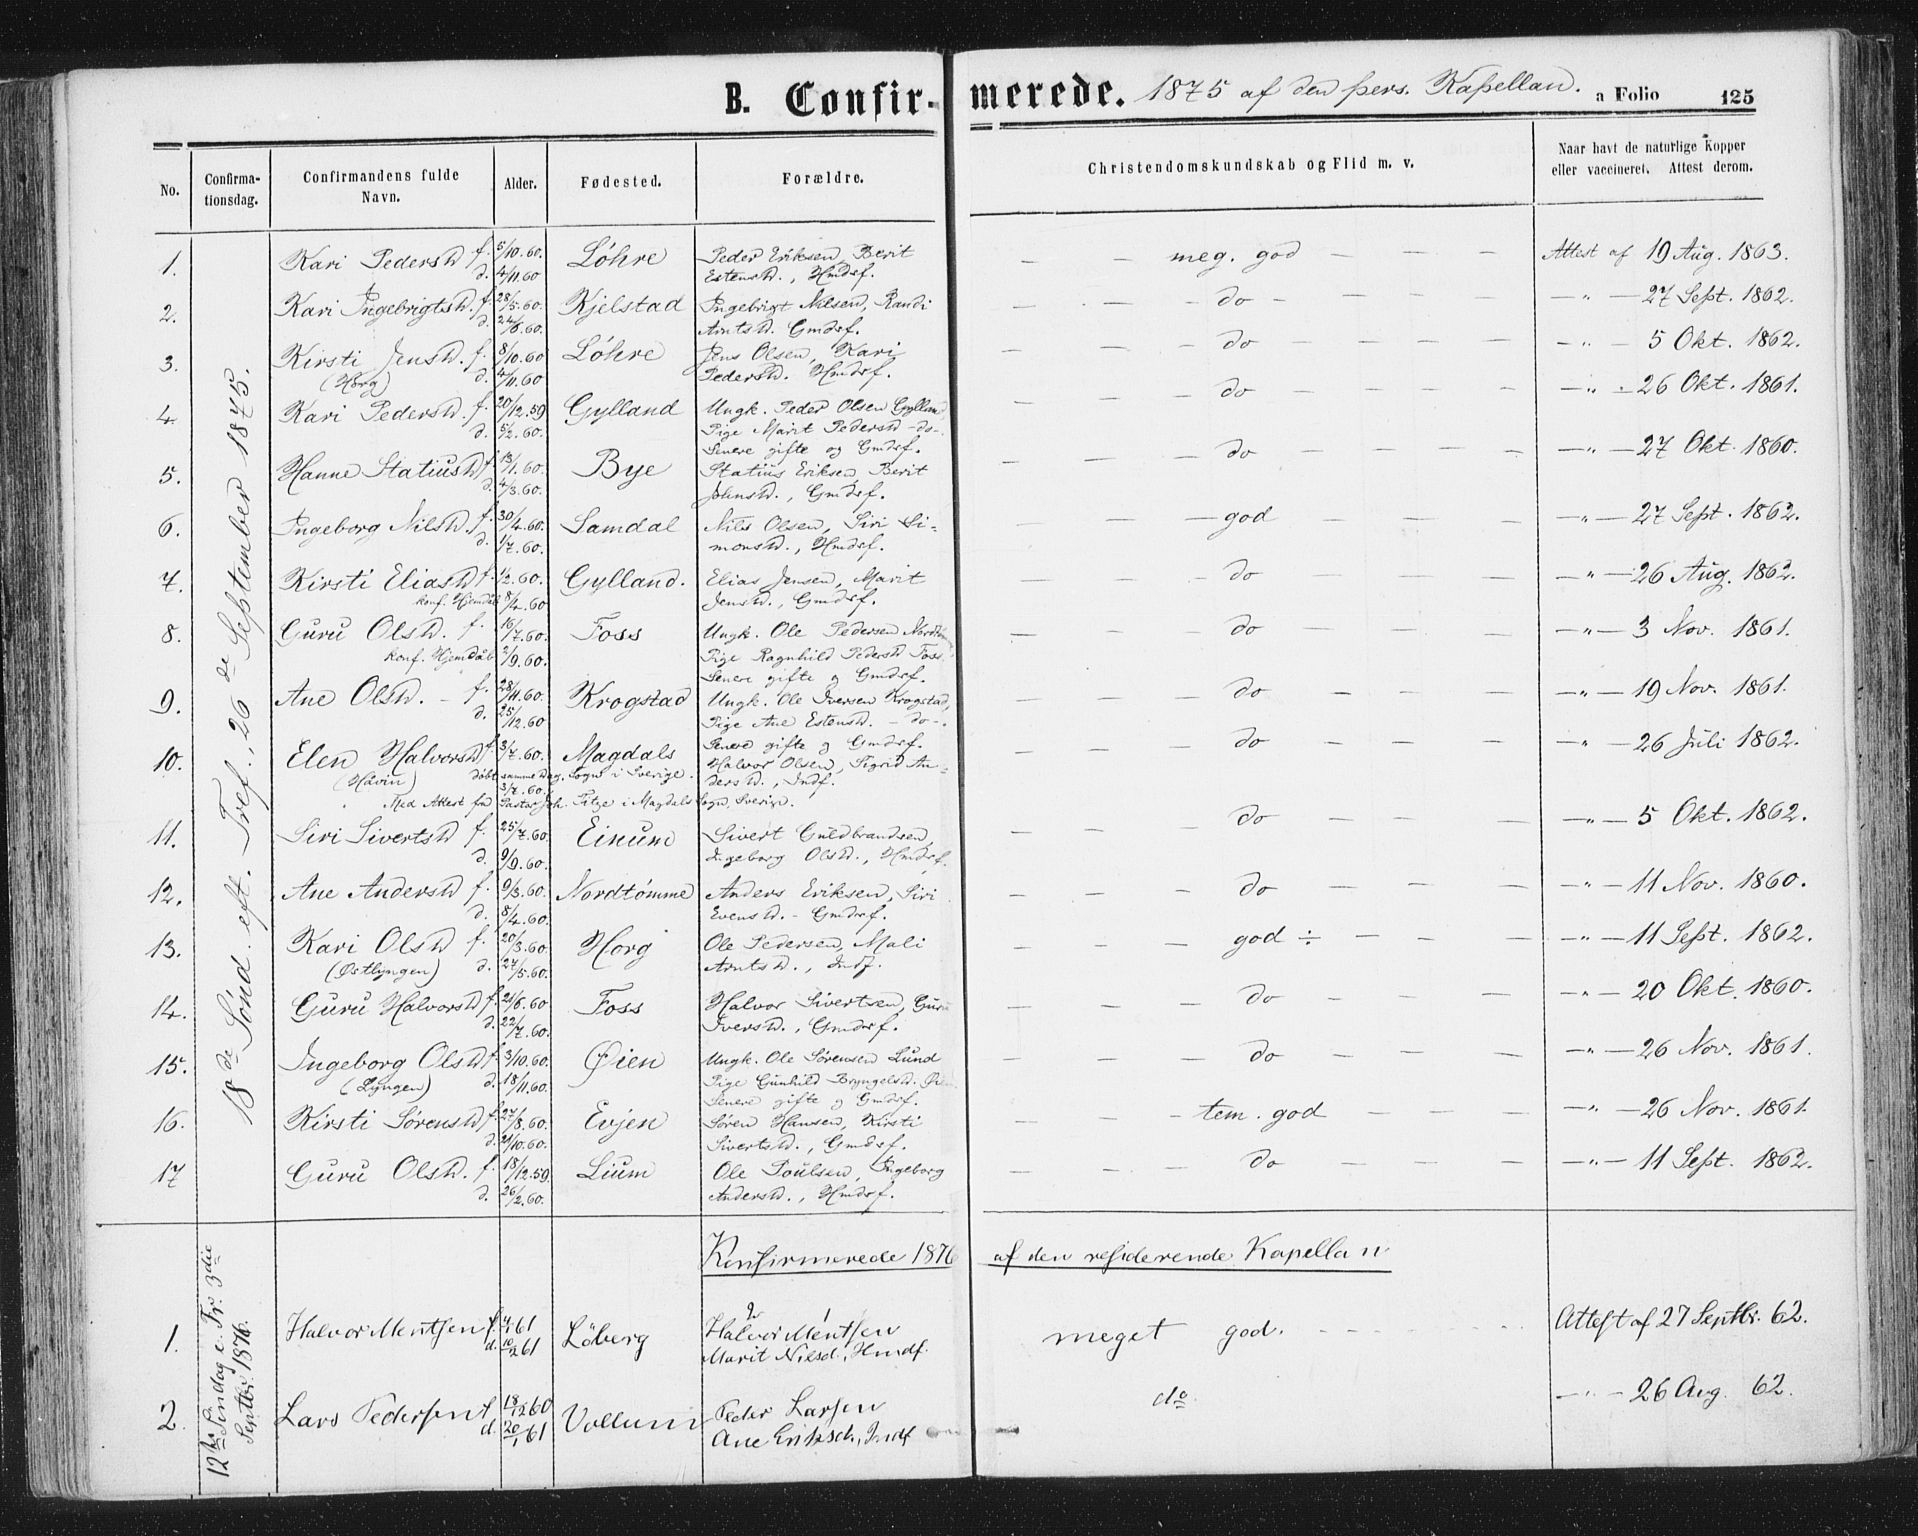 B. Confir- merede. 1875 af den pers. Kapellan. a Folio 125
No.
Confirma-
tionsdag.
Confirmandens fulde
Navn.
Alder.
Fødested.
Forældre.
Christendomskundskab og Flid m. v.
Naar havt de naturlige Kopper
eller vaccineret. Attest derom.
18de Sønd. eft. Tref., 26de September 1875.
1. Kari Pedersd f. 5/10.60. Løhre Peder Eriksen, Berit — — meg. god — — — Attest af 19 Aug. 1863.
d. 4/11.60 Estensd., Hmdsf.
2. Kari Ingebrigtsd. f. 28/5.60. Kjelstad Ingebrigt Nilsen, Randi — — do — — — — -"- — 27 Sept. 1862.
d. 24/6.60. Arntsd. Gmdsf.
3. Kirsti Jensd. f. 8/10.60 Løhre Jens Olsen, Kari — — do — — — — -"- — 5 Okt. 1862.
(Horg) d. 4/11.60 Pedersd. Hmdsf.
4. Kari Pedersd. f. 20/12.59 Gylland Ungk. Peder Olsen Gylland — — do — — — — -"- 26 Okt. 1861.
d. 5/2.60. Pige Marit Pedersd -do-.
Senere gifte og Gmdsf.
5. Hanne Statiusd f. 13/1.60. Bye Statius Eriksen, Berit — — do — — — — -"- 27 Okt. 1860.
d. 4/3.60. Johnsd., Gmdsf.
6. Ingeborg Nilsd. f. 30/4.60. Samdal Nils Olsen, Siri Si- — — god — — — — -"- 27 Sept. 1862.
d. 1/7.60. monsd., Hmdsf.
7. Kirsti Eliasd f. 1/2.60. Gylland. Elias Jensen, Marit — — do — — — -"- 26 Aug. 1862.
konf. Hjemdåb 8/4.60 Jensd., Gmdsf.
8. Guru Olsd. f. 16/7.60. Foss Ungk. Ole Pedersen — — do — — — — -"- 3 Nov. 1861.
konf. Hjemdåb 2/9.60. Pige Ragnhild Pedersd Foss
Senere gifte og Gmdsf.
9. Ane Olsd. — f. 28/11.60. Krogstad Ungk. Ole Iversen Krogstad, — — do — — — — -"- 19 Nov. 1861.
d. 25/12.60 Pige Ane Estensd. -do-.
Senere gifte og Gmdsf.
10. Elen Halvorsd f. 3/7.60. Magdals Halvor Olsen, Sigrid An- — — do — — — — -"- 26 Juli 1862.
(Håvin) døbt samme Dag. Sogn i Sverige. dersd., Indf.
3/7.60.
Med Attest fra Pastor Joh. i Magdals Sogn, Sverige.
11. Siri Sivertsd f. 25/7.60. Einum Sivert Guldbrandsen, — — do — — — — -"- 5 Okt. 1862.
d. 9/9.60. Ingeborg Olsd., Hmdsf.
12. Ane Andersd f. 9/3.60. Nordtømme Anders Eriksen, Siri — — do — — — — -"- 11 Nov. 1860.
d. 8/4.60. Evensd. - Gmdsf.
13. Kari Olsd f. 20/3.60. Horg Ole Pedersen, Mali — — god ÷ — — — — -"- 11 Sept. 1862.
(Østlyngen) d. 27/5.60. Arntsd., Indf.
14. Guru Halvorsd f. 21/6.60 Foss Halvor Sivertsen, Guru — — do — — — — -"- 20 Okt. 1860.
d. 22/7.60. Iversd., Gmdsf.
15. Ingeborg Olsd f. 3/10.60. Øien Ungk. Ole Sørensen Lund — — do — — — — -"- 26 Nov. 1861.
(Lyngen) d. 18/11.60. Pige Gunhild Bryngelsd. Øien
Senere gifte og Gmdsf.
16. Kirsti Sørensd f. 27/8.60. Evjen Søren Hansen, Kirsti — — tem. god — — — — -"- 26 Nov. 1861.
d. 21/10.60. Sivertsd., Gmdsf.
17 Guru Olsd. f. 18/12.59. Lium Ole Poulsen, Ingeborg — — do — — — — -"- 11 Sept. 1862.
d. 26/2.60. Andersd., Hmdsf.
Konfirmerede 1876 af den residerende Kapellan
12te Søndag e. Tr. 3die
Septbr. 1876.
1. Halvor Mentsen f. 4/1 61 Löberg Halvor Mentsen meget god. Attest af 27 Septbr. 62.
d. 10/2 61 Marit Nilsd., Hmdf.
2. Lars Pedersen f. 18/12 60 Vollum Peder Larsen do — " — 26 Aug. 62.
d. 20/1 61 Ane Eriksd., Indf